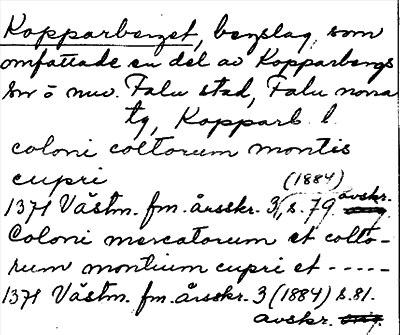 Kopparberget, bergslag, som
omfattade en del av Kopparbergs
sn o nuv. Falu stad, Falu norra
tg, Kopparb. l.
coloni coltorum montis
cupri
(1884)
1371 Västm. fm. årsskr. 3, s. 79. avskr.
Coloni mercatorum et colto-
rum montium cupri et -----
1371 Västm. fm. årsskr. 3 (1884) s. 81.
avskr.